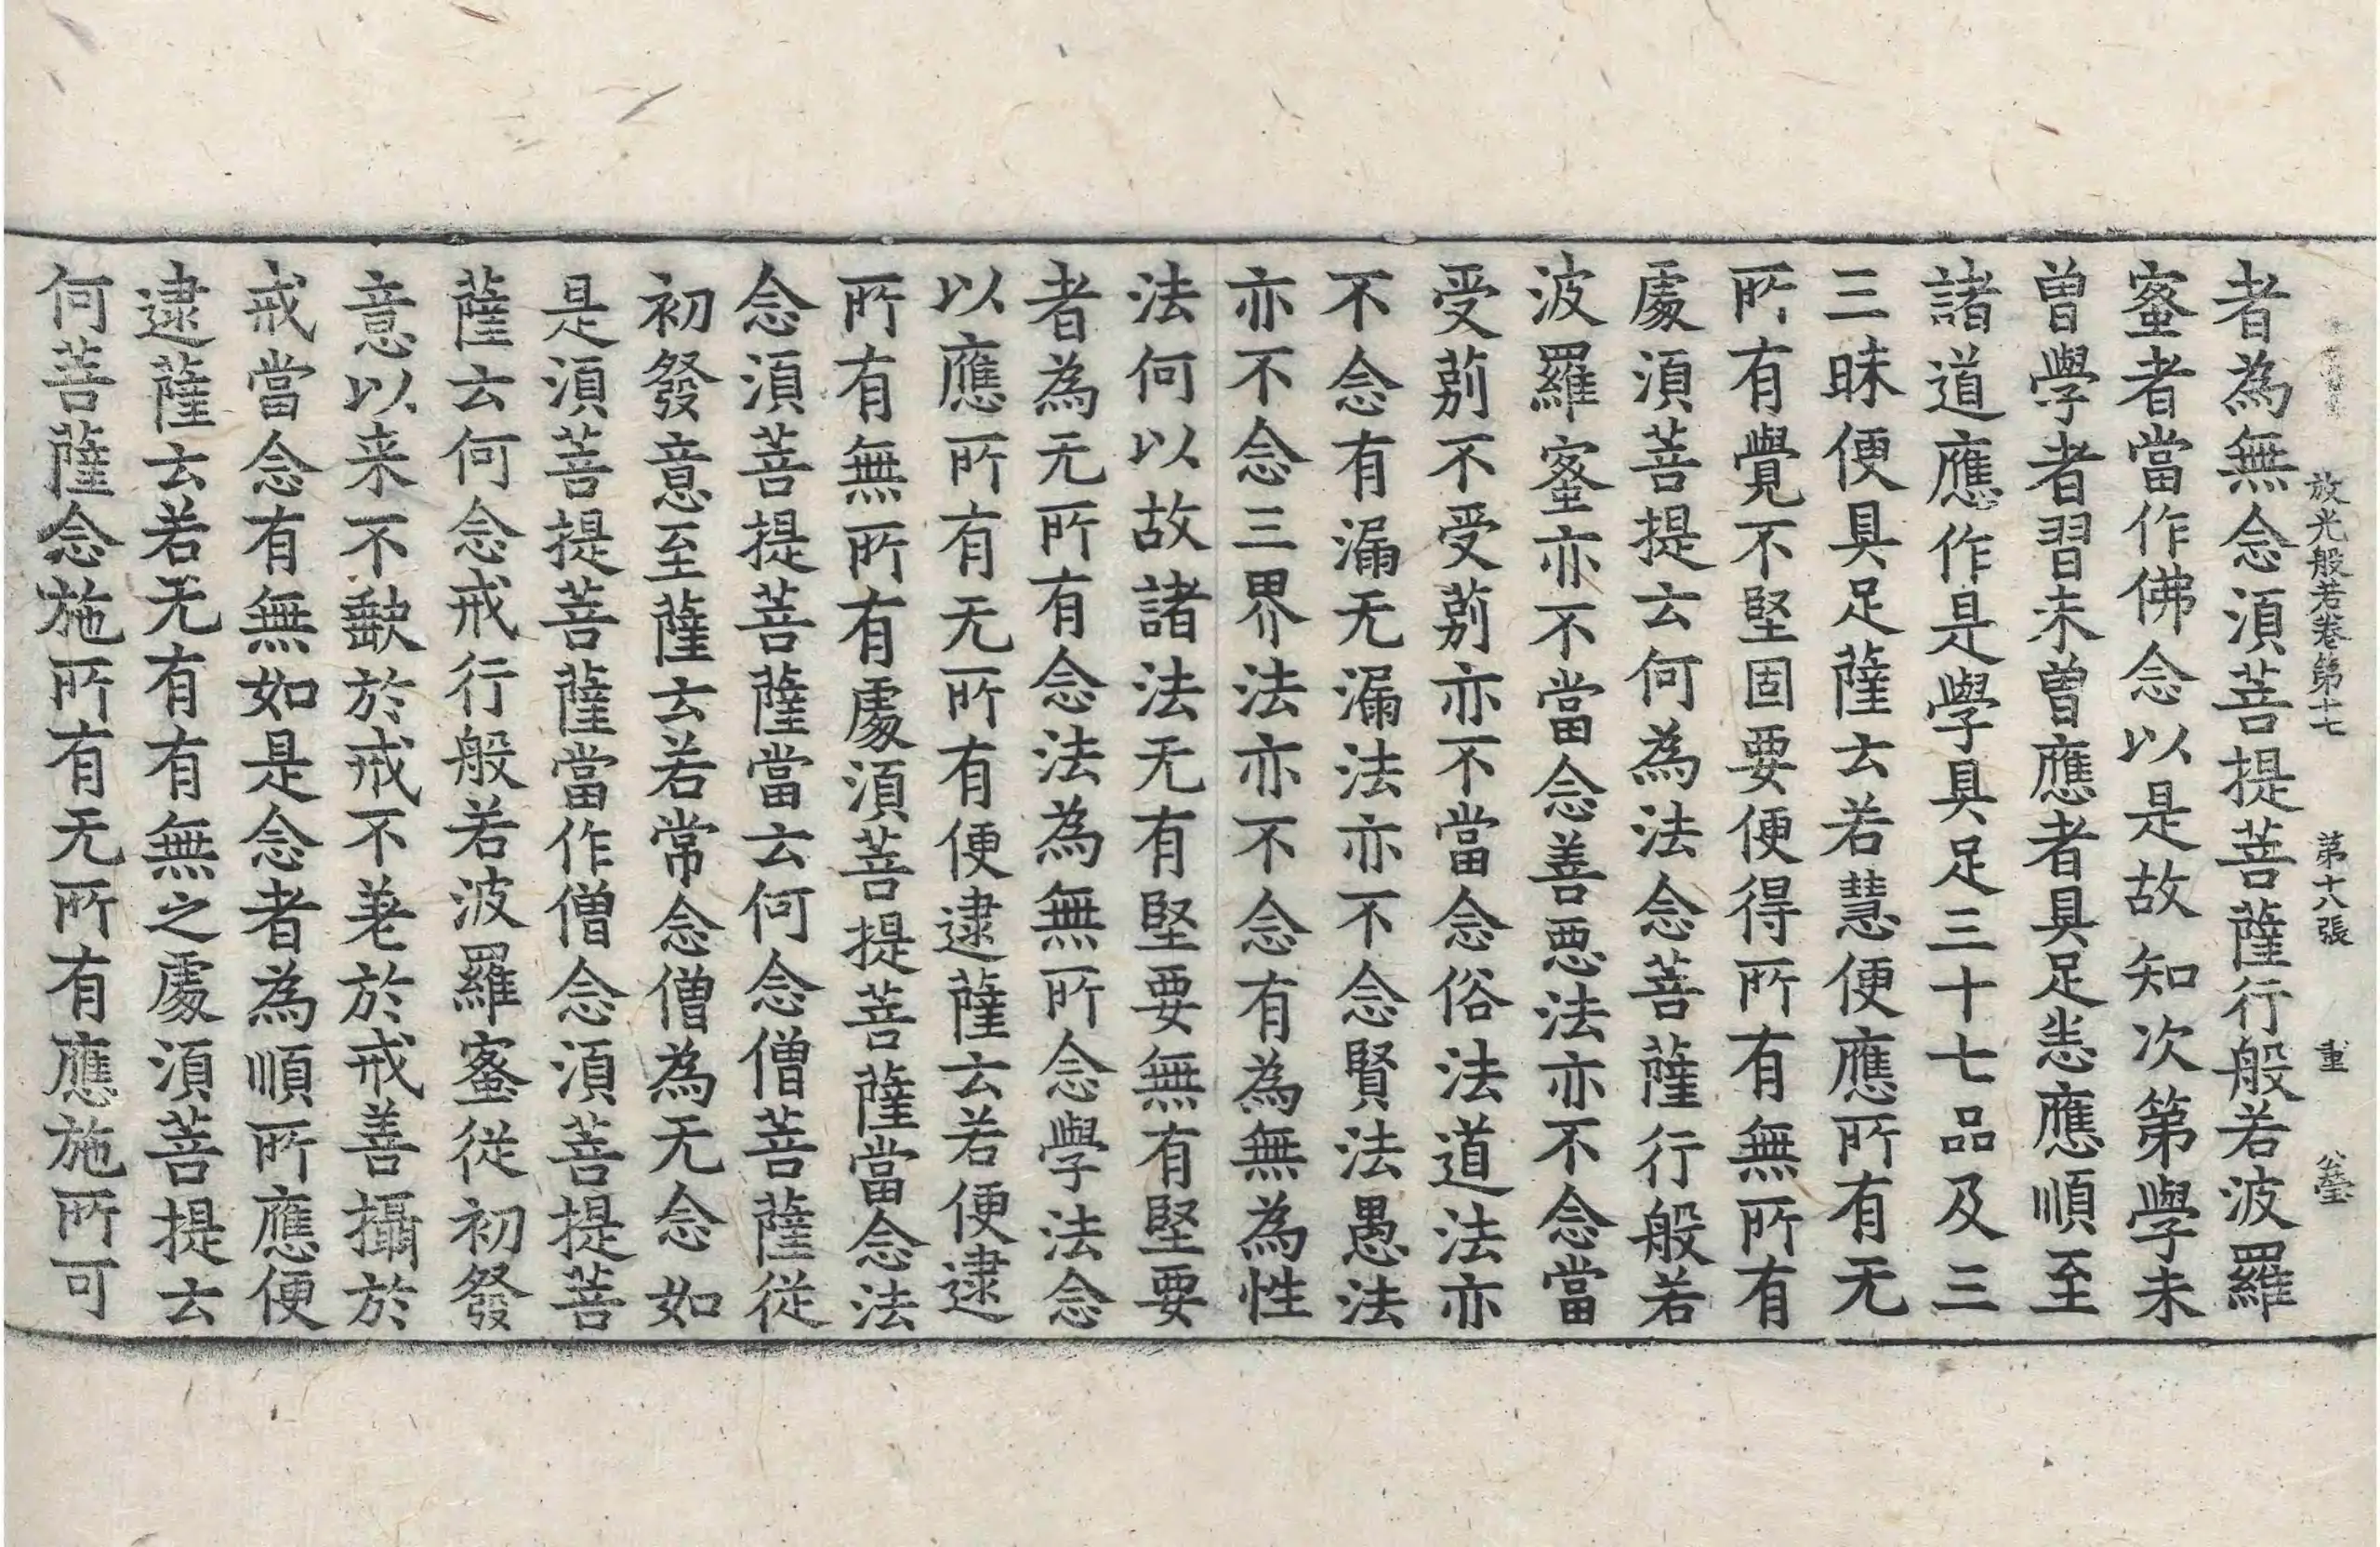 放光般若卷第十七　第十六張　重　公
者為無念湏菩提菩薩行般若波羅
蜜者當作佛念以是故知次第學未
曽學者習未曽應者具足恙應順至
諸道應作是學具足三十七品及三
三昧便具足薩云若慧便應所有无
所有覺不堅固要便得所有無所有
處湏菩提云何為法念菩薩行般若
波羅蜜亦不當念善惡法亦不念當
受莂不受莂亦不當念俗法道法亦
不念有漏无漏法亦不念賢法愚法
亦不念三界法亦不念有為無為性
法何以故諸法无有堅要無有堅要
者為无所有念法為無所念學法念
以應所有无所有便逮薩云若便逮
所有無所有處湏菩提菩薩當念法
念湏菩提菩薩當云何念僧菩薩從
初發意至薩云若常念僧為无念如
是湏菩提菩薩當作僧念湏菩提菩
薩云何念戒行般若波羅蜜從初發
意以来不㱃於戒不羗於戒善攝於
戒當念有無如是念者為順所應便
逮薩云若无有有無之處湏菩提云
何菩薩念施所有无所有應施所可